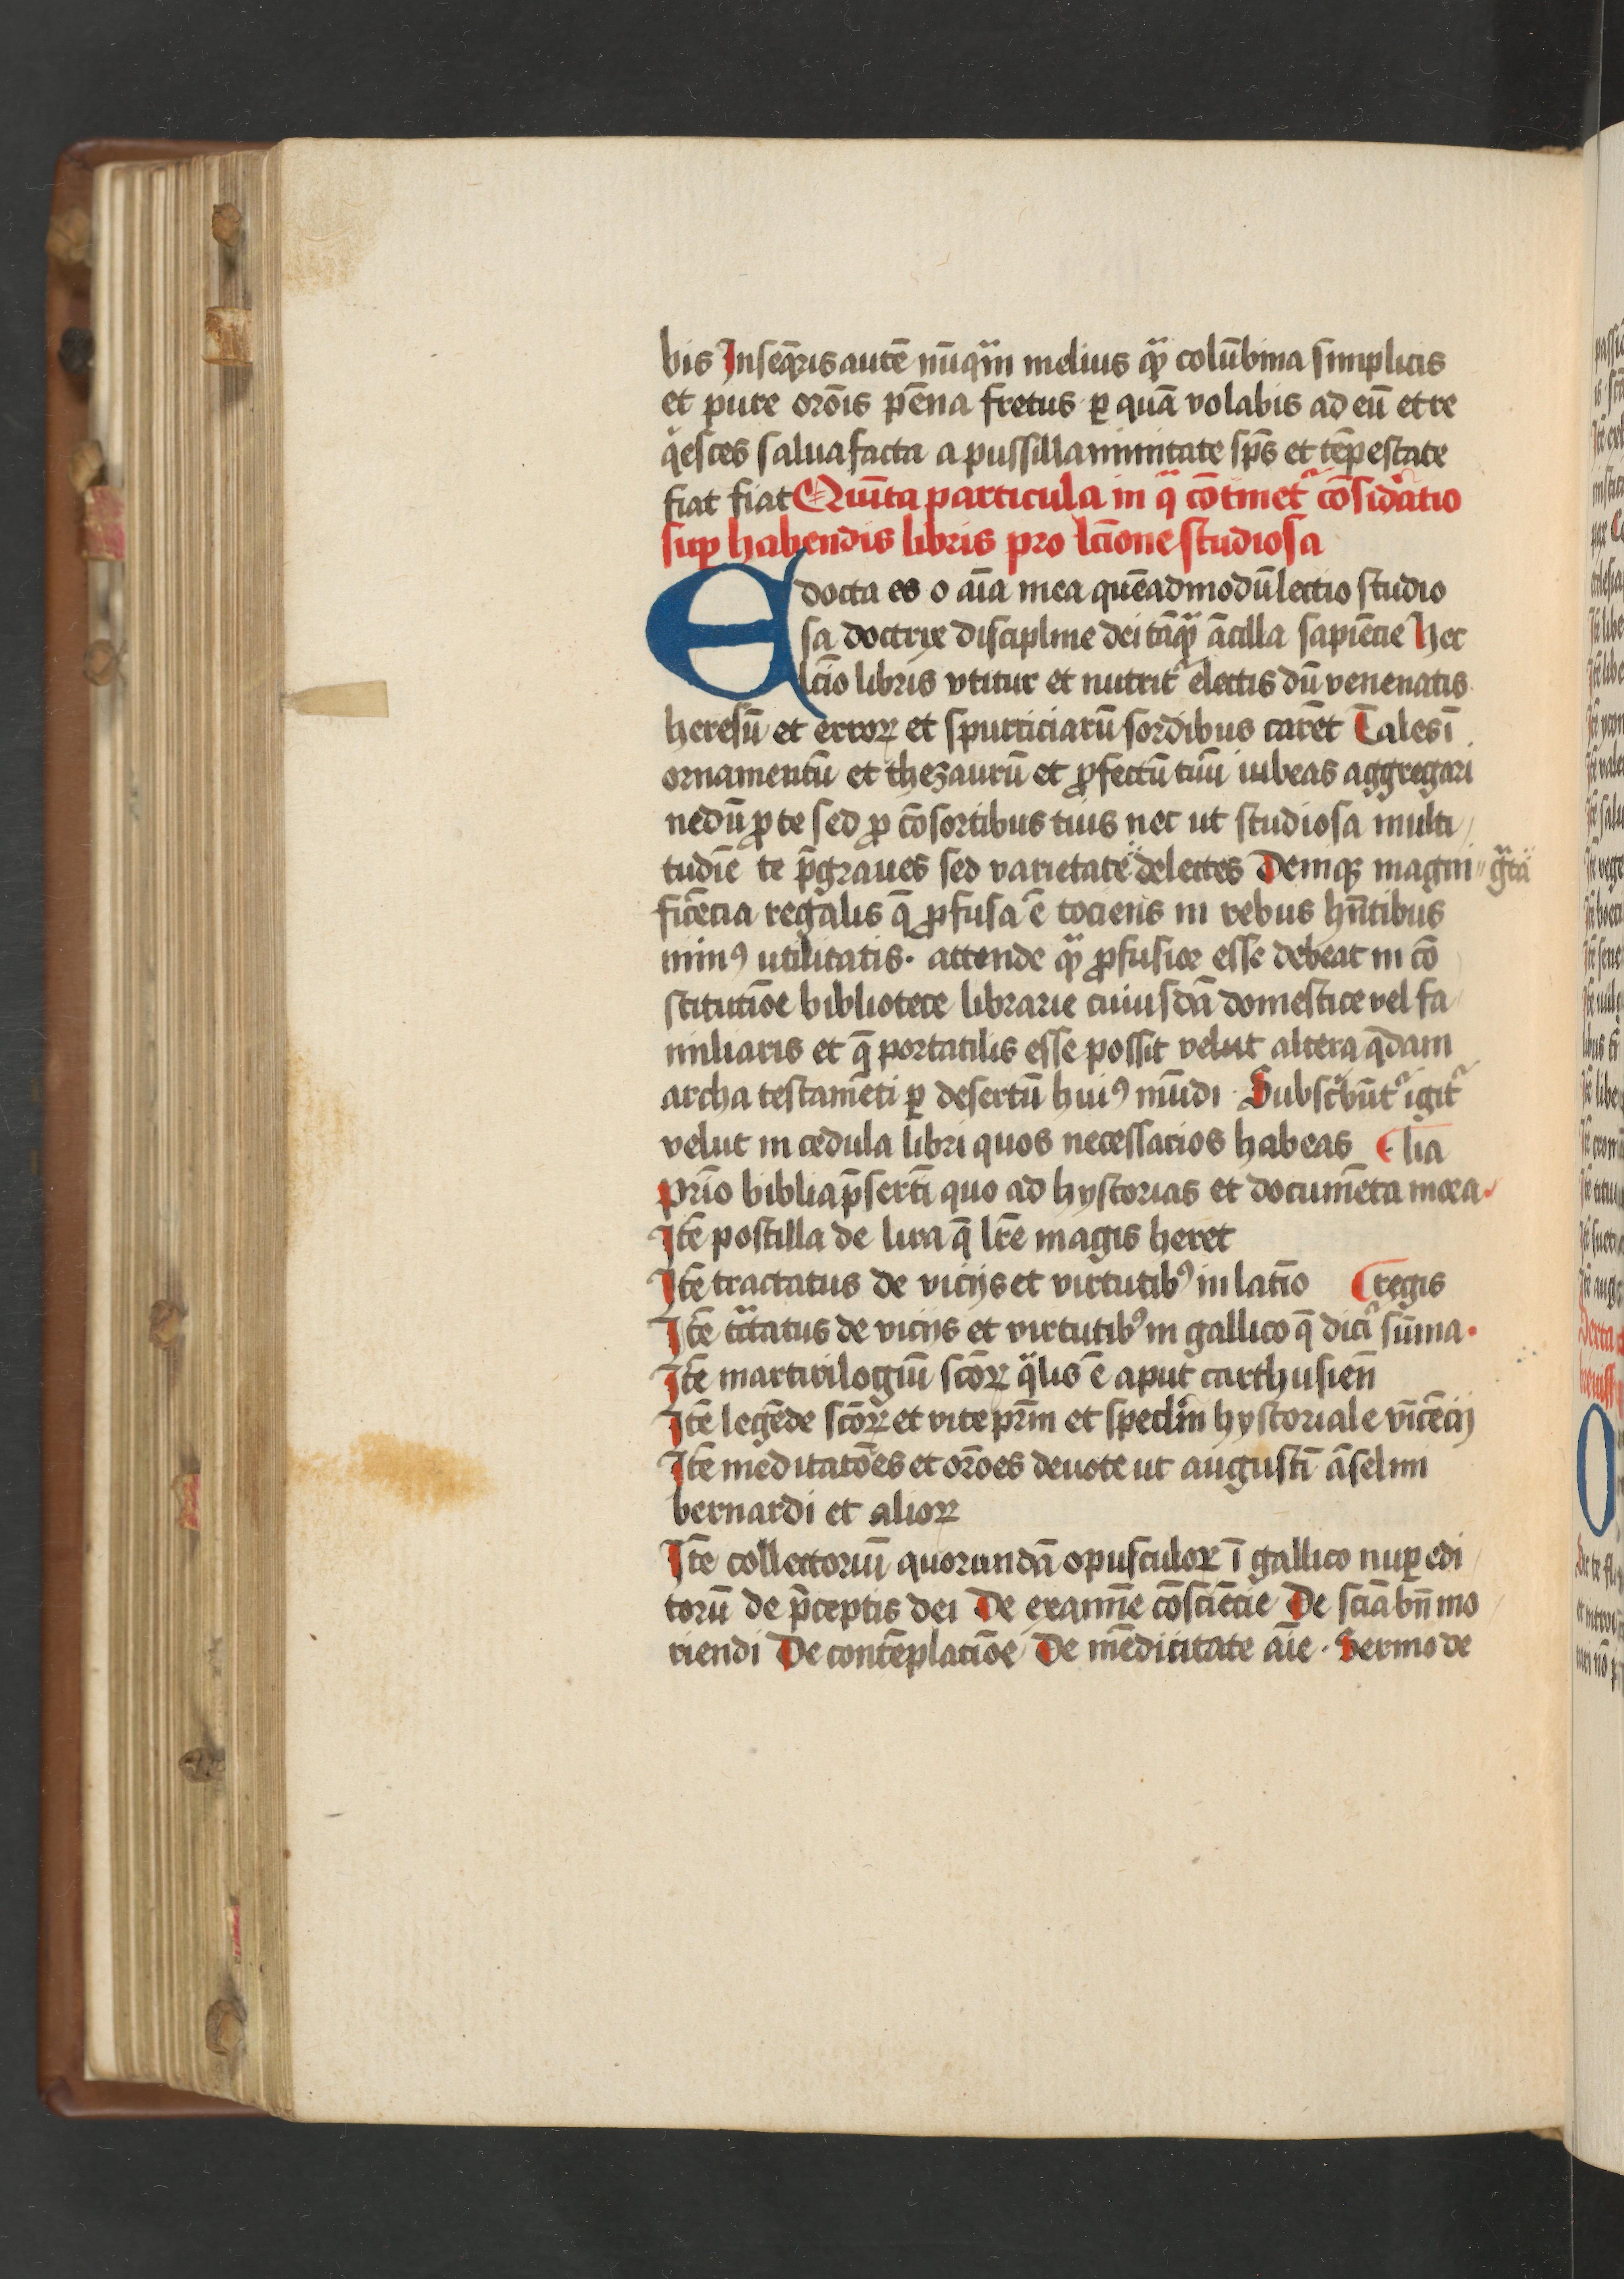 bis Inseq̄ris autē nūqᷓm melius qᷓ colūbina simplicis
et pure orōis pēna fretus ꝑ quā volabis ad eū et re
qͥesces salua facta a pussillanimitate sp̄s et tēpestate
fiat fiat Quīta particula in qᷓ cōtinetᷣ cōsidᷓatio
suꝑ habendis libris pro lc̄ione studiosa
Edocta es o aīa mea quēadmodū lectio studio
sa doctrix discipline dei tāqᷓ ācilla sapiēcie hec
lc̄io libris vtitur et nutritᷣ electis dū venenatis
heresū et erroꝝ et spurticiarū sordibus carēt Tales ī
ornamentū et thezaurū et ꝓfectū tuū iubeas aggregari
nedū ꝓ te sed ꝓ cōsortibus tuis nec ut studiosa multi
tudīe te p̄graues sed varietate delectes Deniqꝫ magni gᷓta
ficēcia regalis q̄ ꝓfusa ē tociens in rebus hn̄tibus
minꝰ utilitatis. attende qᷓ ꝓfusior esse debeat in cō
stitutiōe bibliotece librarie cuiusdā domestice vel fa
miliaris et q̄ portatilis esse possit velut altera qᷓdam
archa testamēti ꝑ desertū huiꝰ mūdi Subscͥbūtᷣ igitᷣ
velut in cedula libri quos necessarios habeas lia
prīo biblia p̄sertī quo ad hystorias et documēta mora
Itē postilla de lira q̄ lr̄e magis heret
Itē tractatus de vicijs et virtutibꝰ in latīo regis
Itē tᷓctatus de vicijs et virtutibꝰ in gallico q̄ dicitᷣ sūma
Itē martirilogiū scōꝝ qᷓlis ē aput carthusien̄
Itē legēde scōꝝ et vite pr̄m et speclm̄ hystoriale vīcēcij
Itē meditatōes et orōes deuote ut augustī āselmi
bernardi et alioꝝ
Itē collectoriū quorundā opusculoꝝ ī gallico nuꝑ edi
torū de p̄ceptis dei De examīe cōsciēcie De sciā bn̄ mo
riendi De contēplatiōe De mēdicitate aīe. Sermo de